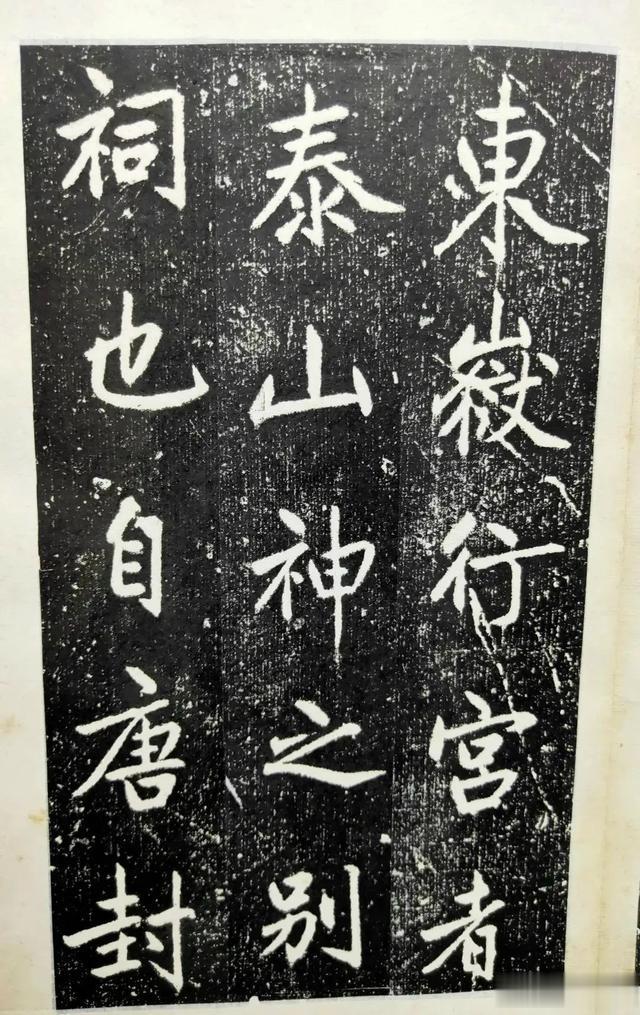 東嶽行宮者
泰山神之别
祠也自唐封